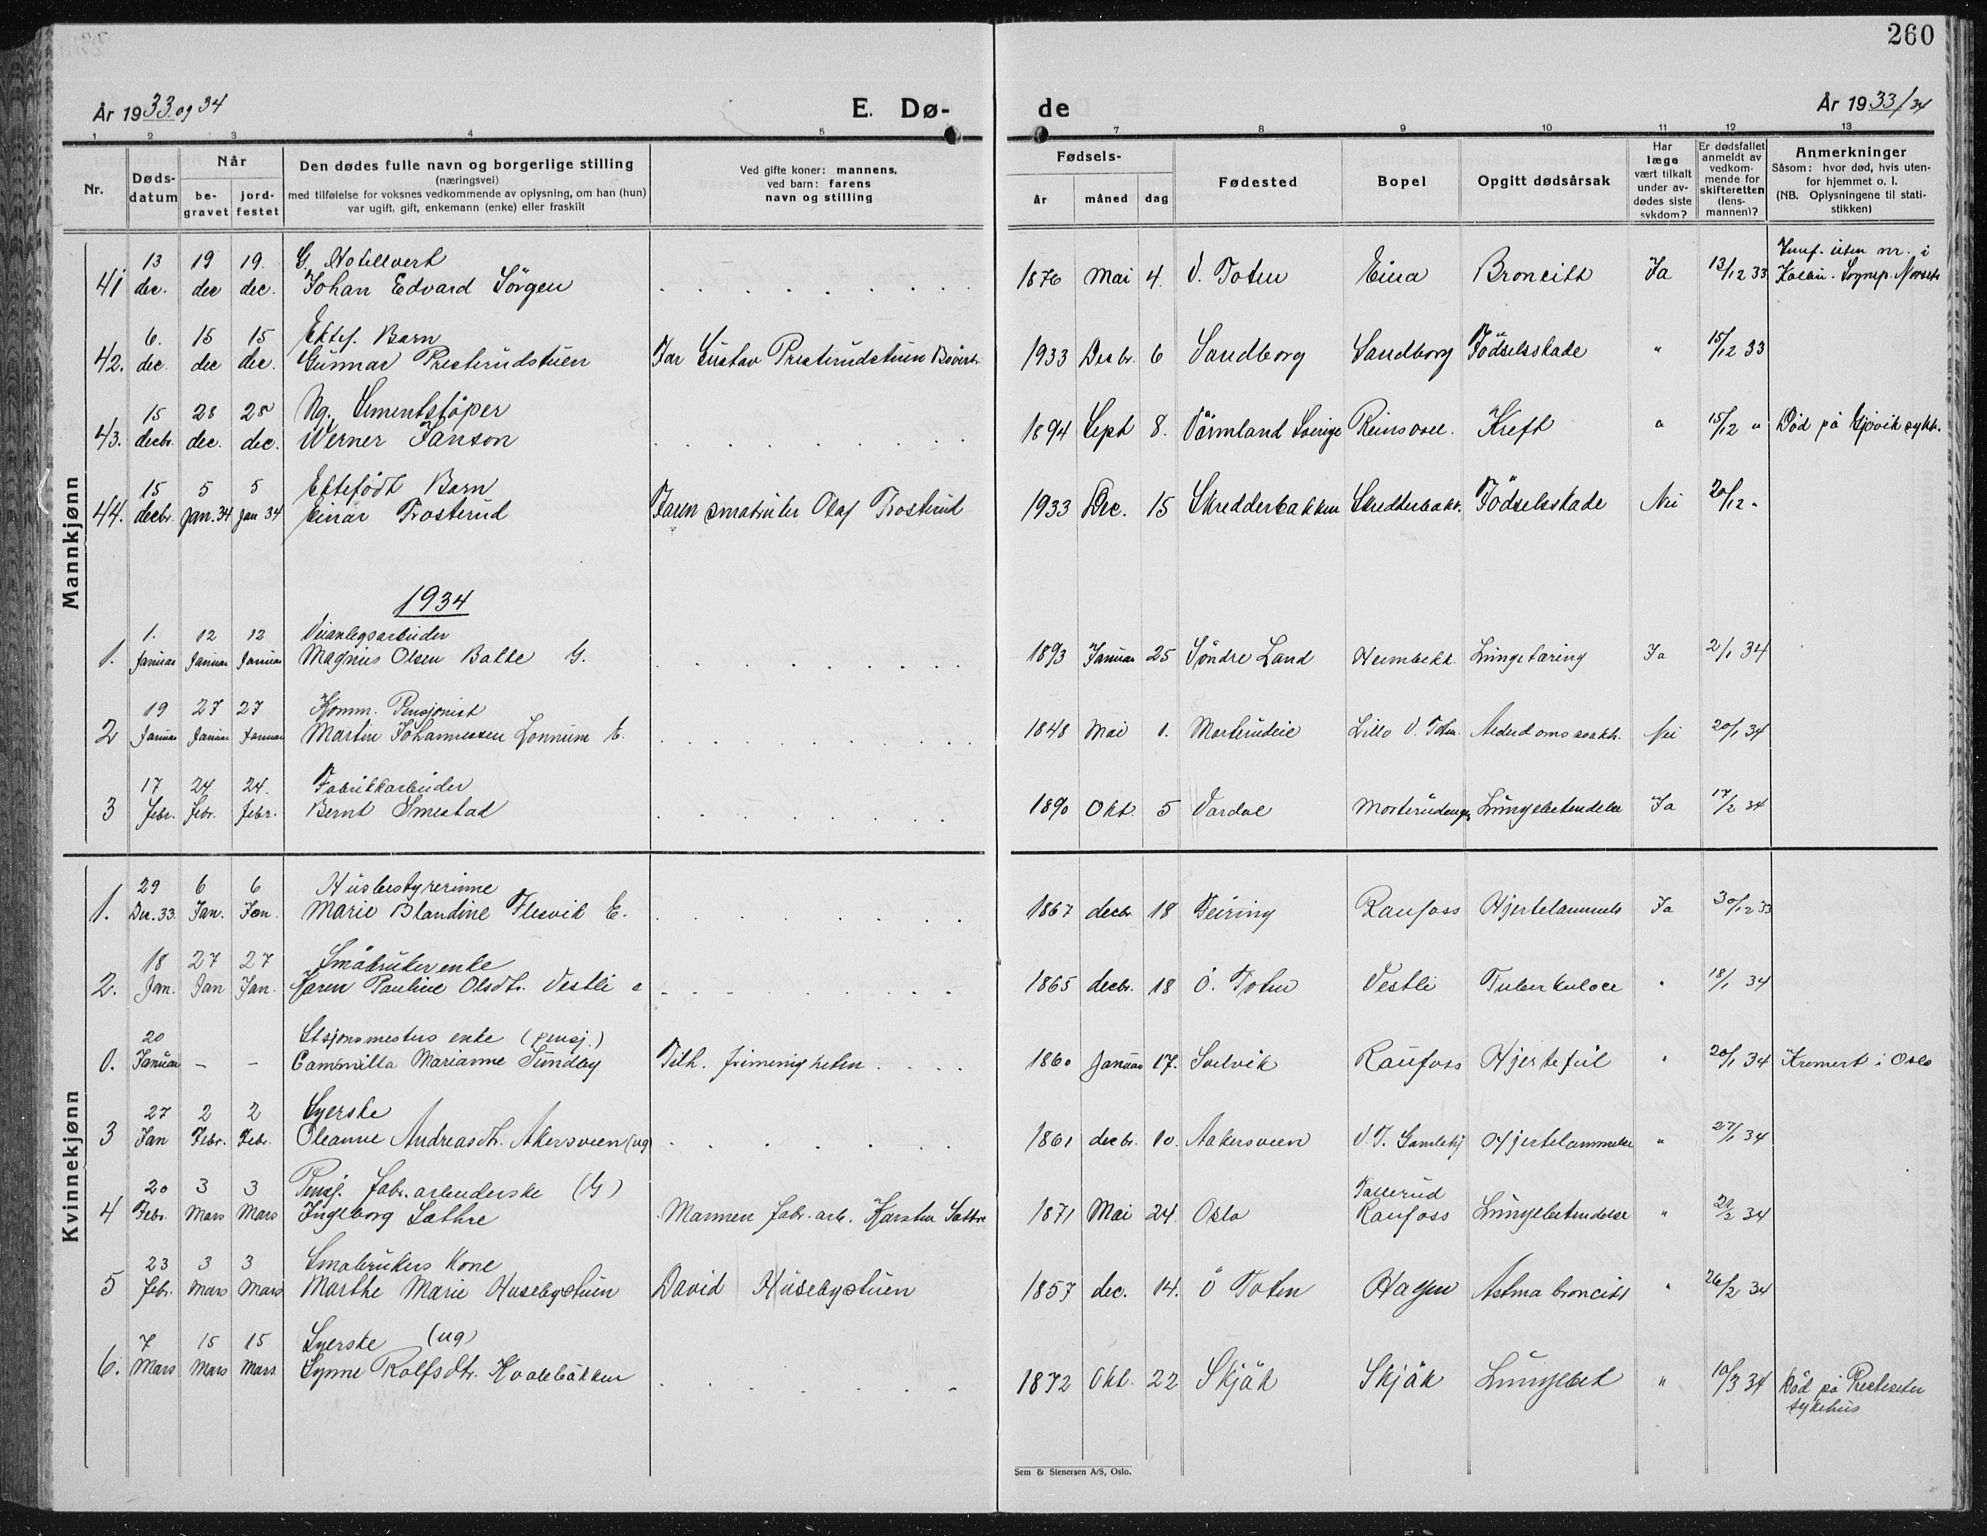 260
År 1933 og 34
E. Dø-
de
År 1933/34
1 2 3 4 5 7 8 9 10 11 12 13
Nr.
Døds-
datum
Når
be-
gravet
jord-
festet
Den dødes fulle navn og borgerlige stilling
(næringsvei)
med tilføielse for voksnes vedkommende av oplysning, om han (hun)
var ugift, gift, enkemann (enke) eller fraskilt
Ved gifte koner: mannens,
ved barn: farens
navn og stilling
Fødsels-
år måned dag
Fødested
Bopel
Opgitt dødsårsak
Har
læge
vært tilkalt
under av-
dødes siste
sykdom?
Er dødsfallet
anmeldt av
vedkom-
mende for
skifteretten
(lens-
mannen)?
Anmerkninger
Såsom: hvor død, hvis uten-
for hjemmet o. l.
(NB. Oplysningene til stati-
stikken)
Mannkjønn
13 19 19. G. Hotellvert
41 dec. dec dec. Johan Edvard Sörgen 1876 Mai 4. V. Toten Eina Broncitt Ja 13/12 33
6. 15 15 Ektef. Barn
42. dec. dec dec. Gunnar Presterudstuen Far Gustav Presterudstuen 1933 Decbr. 6 Sandborg Sandborg Födselsskade " 15/12 33
15 28 28 Ug. Sementstöper
43. decbr. dec. dec. Werner Janson 1894 Sept 8. Värmland Sverige Reinsvoll Kreft " 15/12 " Död på Gjøvik sykh.
15 5 5 Ektefödt Barn
44. decbr. jan. 34 jan 34 Einar Trosterud Faren småbruker Olaf Trosterud 1933 Dec. 15 Skredderbakken Skredderbakk. Födselsskade Nei 20/12 "
1934
1. 12 12 Veianlegsarbeider
1. Januar Januar Januar Magnus Olsen Bakke G. 1893 Januar 25 Söndre Land Lungetæring Ja 2/1 34
19 27 27 Komm. Pensjonist
2 Januar Januar Januar Martin Johannessen Lönnum E. 1848 Mai 1. Morterudeie Lillo V. Toten. Alderdomssvakh. Nei 20/1 34
17 24 24. Fabrikkarbeider
3 Febr. Febr. Febr. Bernt Smestad 1890 Okt. 5 Vardal Lungebetendelse Ja 17/2 34
Kvinnekjønn
29 6 6 Husbestyrerinne
1. Dec. 33. Jan. Jan. Marie Blandine Flesvik E. 1867 decbr. 18 Feiring Raufoss Hjertelammels Ja 30/12 33
18 27 27 Småbrukerenke
2. Jan. Jan Jan. Karen Pauline Olsdtr. Vestli e 1865 decbr. 18 Ö. Toten Vestli Tuberkulose " 18/1 34
20 Stsjonsmesters enke (pensj.)
0. Januar - - Cammilla Marianne Sundby Tilh. frimenigheten 1860 Januar 17. Svelvik Raufoss Hjertefeil " 20/1 34 Kremert i Oslo
27 2 2 Syerske
3 Jan Febr. Febr. Oleanne Andreasdtr. Akersveen (ug) 1861 decbr. 10. Aakersveen V. T. Gamlehj Hjertelammelse " 27/1 34
20 3 3 Pensj. fabr. arbeiderske (G)
4 Febr. Mars Mars Ingeborg Sæthre Mannen fabr. arb. Karsten Sæthre 1871 Mai 24. Oslo Raufoss Lungebetendelse " 22/2 34
23 3 3 Småbrukers Kone
5 Febr. Mars Mars Marthe Marie Husebystuen David Husebystuen 1857 dec. 14. Ö Toten Hagen Astma broncitt " 26/2 34
7 15 15 Syerske (ug)
6. Mars Mars Mars. Synne Rolfsdtr. Kvalebakken 1872 Okt. 22 Skjåk Skjåk Lungebet " 10/3 34 Död på Presteseter
sykehus
Sem & Stenersen A/S, Oslo.